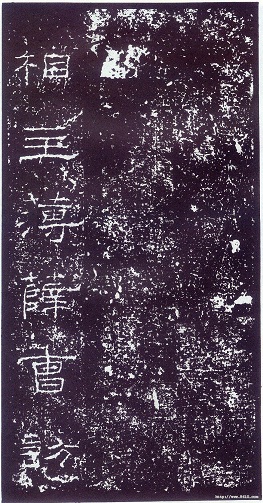 相主薄薛曹訪
http://www.9610.com